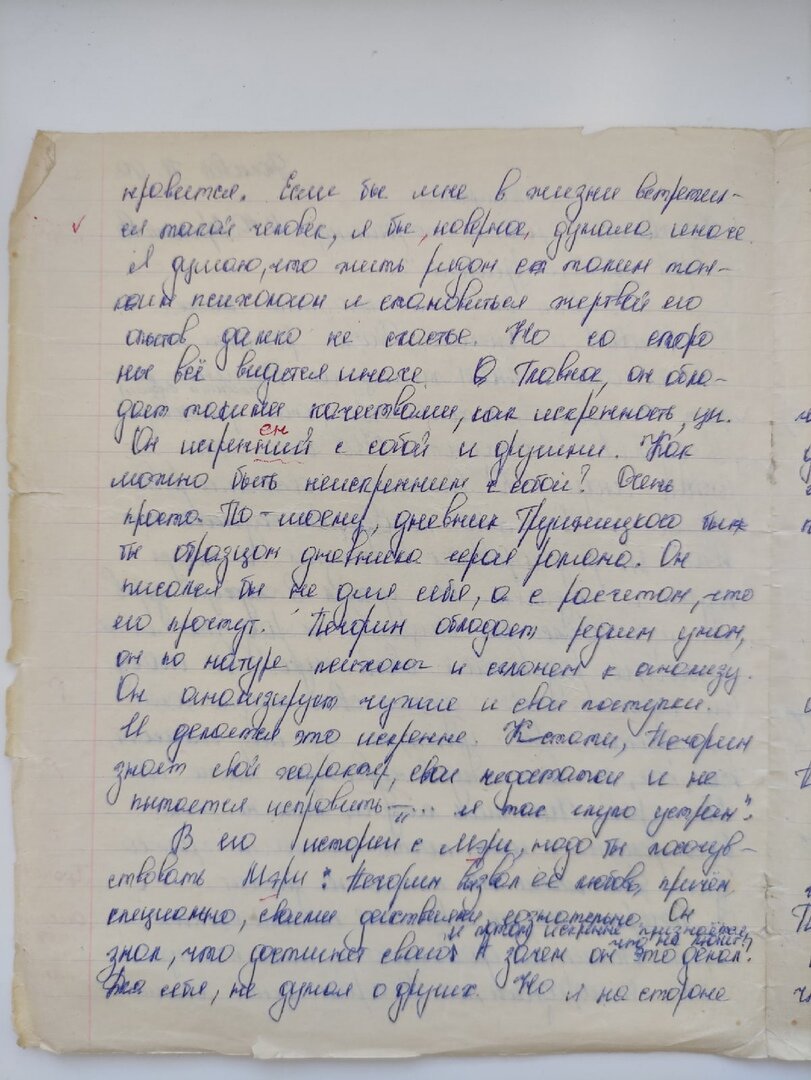 нравится. Если бы мне в жизни встретил-
ся такой человек, я бы, наверное, думала иначе
Я думаю, что жить рядом с таким тон-
ким психологом и становиться жертвой его
опытов далеко не счастье. Но со сторо
ны всё видится иначе. Главное, он обла-
дает такими качествами, как искренность, ум.
ен
Он искренний с собой и другими. Как
можно быть неискренним с собой? Очень
просто. По-моему, дневник Грушницкого был
бы образцом дневника героя романа. Он
писался бы не для себя, а с расчетом, что
его прочтут. Печорин обладает редким умом,
он по натуре психолог и склонен к анализу.
Он анализирует чужие и свои поступки.
И делается это искренне. Кстати, Печорин
знает свой характер, свои недостатки и не
пытается исправить – "... я так глупо устроен".
В его истории с Мэри, надо бы посочув-
ствовать Мэри: Печорин вызвал её любовь, причём
специально, своими действиями, сознательно. Он
и потом искренне признаётся,
что не любит?
знал, что достигнет своего А зачем он это делал?
Для себя, не думая о других. Но я на стороне